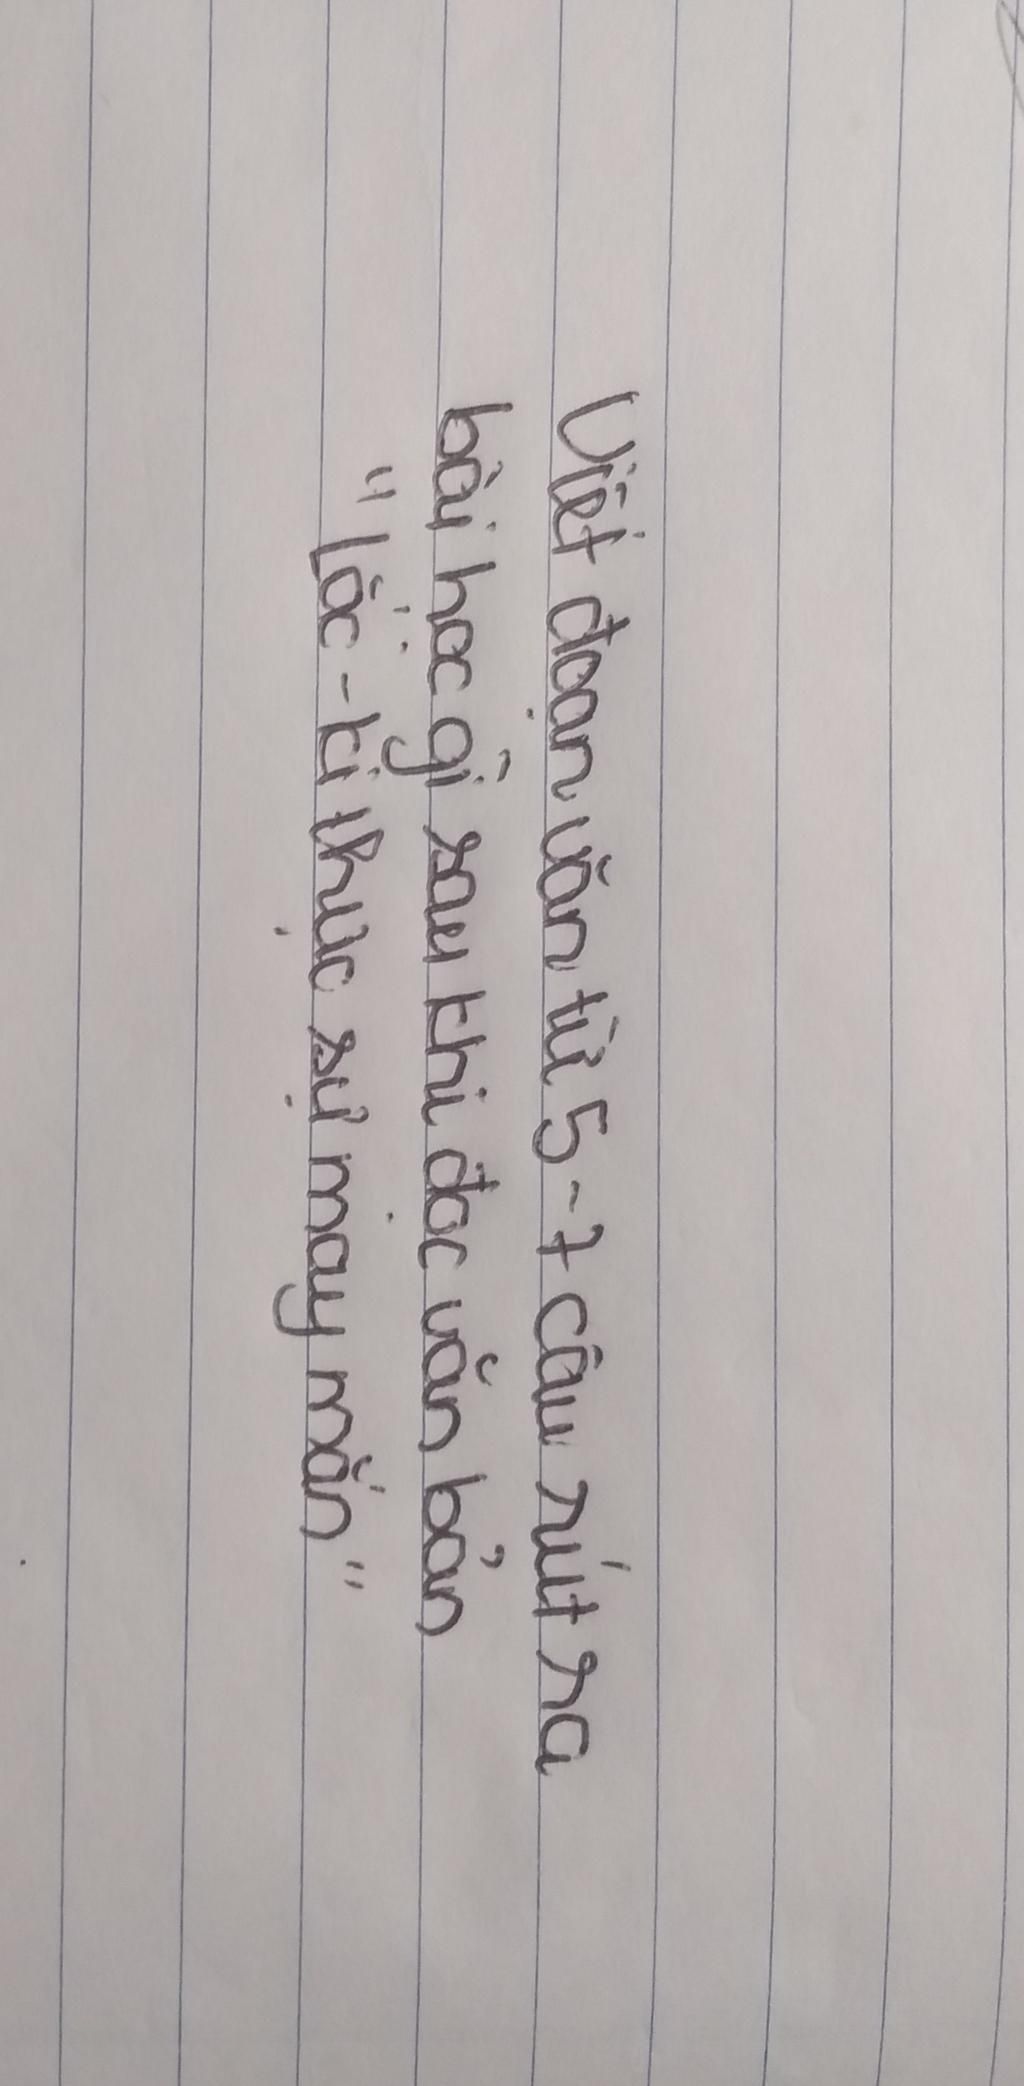 Viết đoạn văn từ 5-7 câu rút ra
bài học gì sau khi đọc văn bản
"Lắc-ki thực sự may mắn"